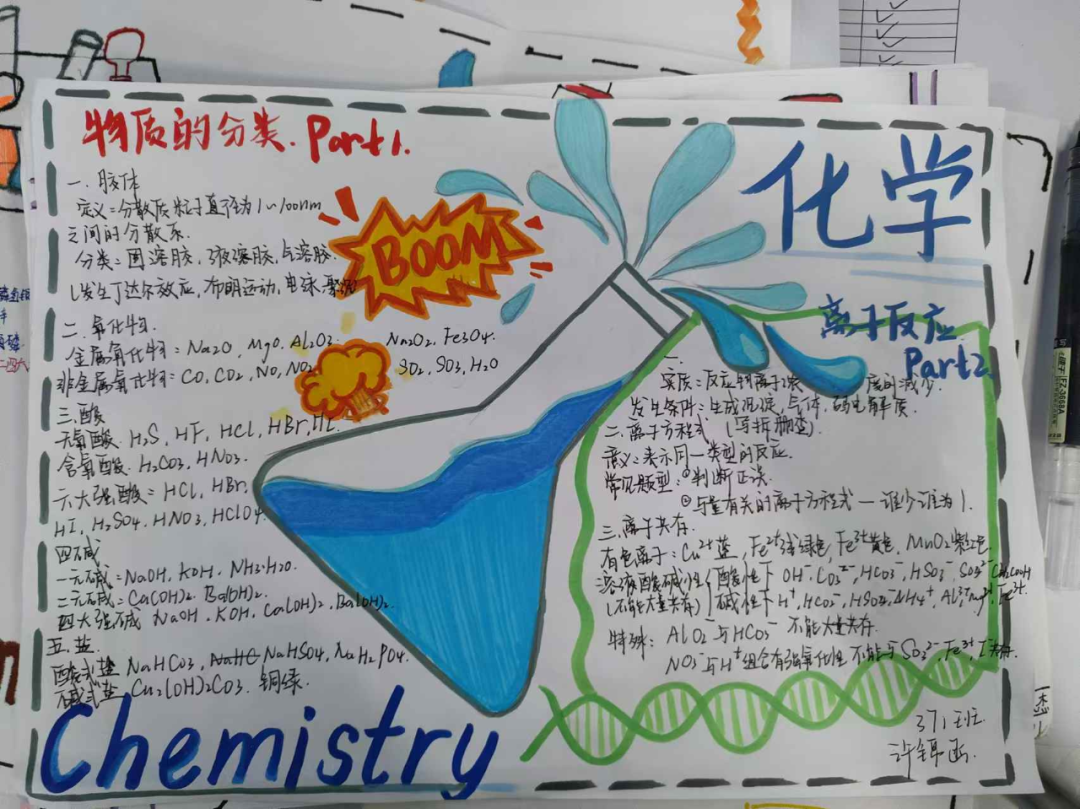 物质的分类. Part1.
一. 胶体
定义：分散质粒子直径为1~100nm
之间的分散系.
分类：固溶胶, 液溶胶, 气溶胶.
(发生丁达尔效应, 布朗运动, 电泳, 聚沉
BOOM
二. 氧化物.
金属氧化物：Na2O, MgO, Al2O3. Na2O2, Fe3O4.
非金属氧化物：CO, CO2, NO, NO2 SO2, SO3, H2O
三. 酸
无氧酸. H2S, HF, HCl, HBr, HI.
含氧酸. H2CO3, HNO3.
六大强酸：HCl, HBr,
HI, H2SO4, HNO3, HClO4.
四. 碱
一元碱：NaOH, KOH, NH3·H2O.
二元碱：Ca(OH)2. Ba(OH)2.
四大强碱 NaOH, KOH, Ca(OH)2, Ba(OH)2.
五. 盐.
酸式盐 NaHCO3, NaHC NaHSO4, NaH2PO4.
碱式盐 Cu2(OH)2CO3. 铜绿.
Chemistry
化学
离子反应.
Part2
一.
实质：反应物离子浓 度的减少.
发生条件：生成沉淀, 气体, 弱电解质.
二. 离子方程式 (写拆删查).
意义：表示同一类型的反应.
常见题型：①判断正误.
②与量有关的离子方程式—谁少谁为1.
三. 离子共存.
有色离子：Cu2+蓝, Fe2+浅绿色, Fe3+黄色, MnO2紫红色
溶液酸碱性 酸性下 OH-, CO32-, HCO3-, HSO3-, SO32- CH3COOH
(不能大量共存) 碱性下 H+, HCO3-, HSO4-, NH4+, Al3+, Fe3+
特殊：AlO2-与HCO3- 不能大量共存.
NO3-与H+组合有强氧化性 不能与SO32-, Fe3+, I-共存.
371班
许